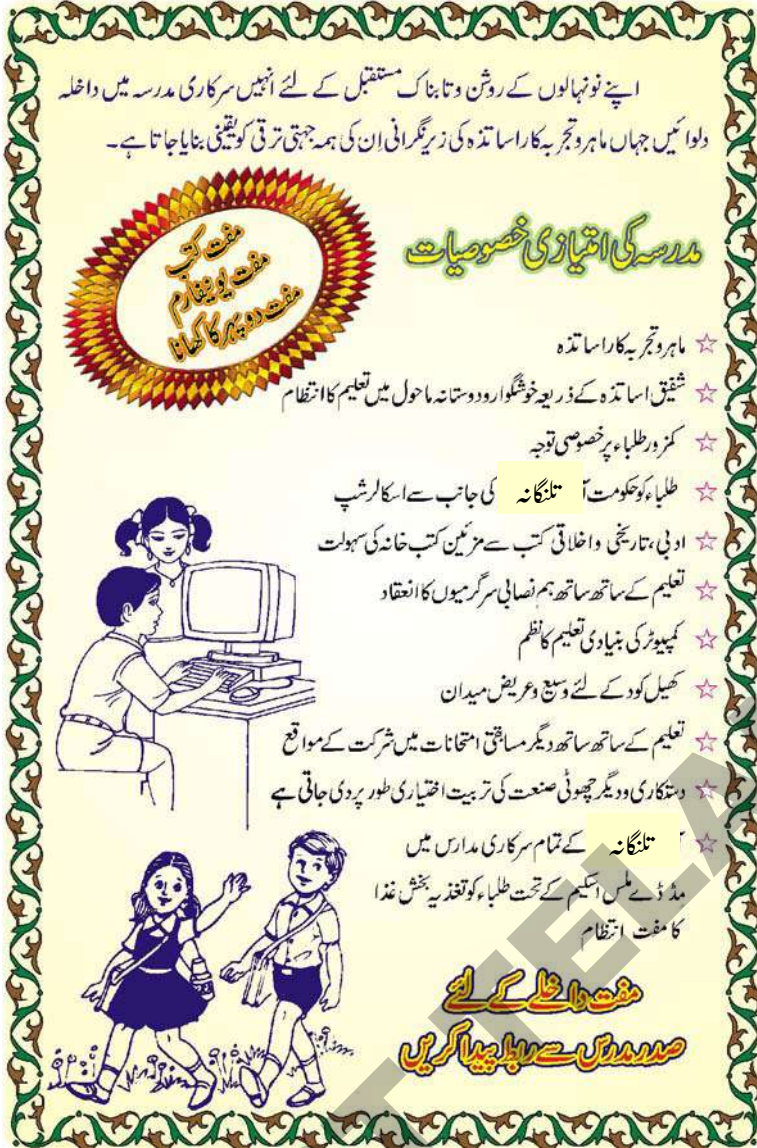 اپنے نونہالوں کے روشن و تابناک مستقبل کے لئے انہیں سرکاری مدرسہ میں داخلہ
دلوائیں جہاں ماہر و تجربہ کار اساتذہ کی زیرنگرانی اِن کی ہمہ جہتی ترقی کو یقینی بنایا جاتا ہے۔
مفت کتب
مفت یونیفارم
مفت دوپہر کا کھانا
مدرسہ کی امتیازی خصوصیات
☆ ماہر و تجربہ کار اساتذہ
☆ شفیق اساتذہ کے ذریعہ خوشگوار و دوستانہ ماحول میں تعلیم کا انتظام
☆ کمزور طلباء پر خصوصی توجہ
☆ طلباء کو حکومت تلنگانہ کی جانب سے اسکالرشپ
☆ ادبی، تاریخی و اخلاقی کتب سے مزئین کتب خانہ کی سہولت
☆ تعلیم کے ساتھ ساتھ ہم نصابی سرگرمیوں کا انعقاد
☆ کمپیوٹر کی بنیادی تعلیم کا نظم
☆ کھیل کود کے لئے وسیع و عریض میدان
☆ تعلیم کے ساتھ ساتھ دیگر مسابقتی امتحانات میں شرکت کے مواقع
☆ دستکاری و دیگر چھوٹی صنعت کی تربیت اختیاری طور پر دی جاتی ہے
☆ تلنگانہ کے تمام سرکاری مدارس میں
مڈ ڈے ملس اسکیم کے تحت طلباء کو تغذیہ بخش غذا
کا مفت انتظام
مفت داخلے کے لئے
صدر مدرس سے ربط پیدا کریں